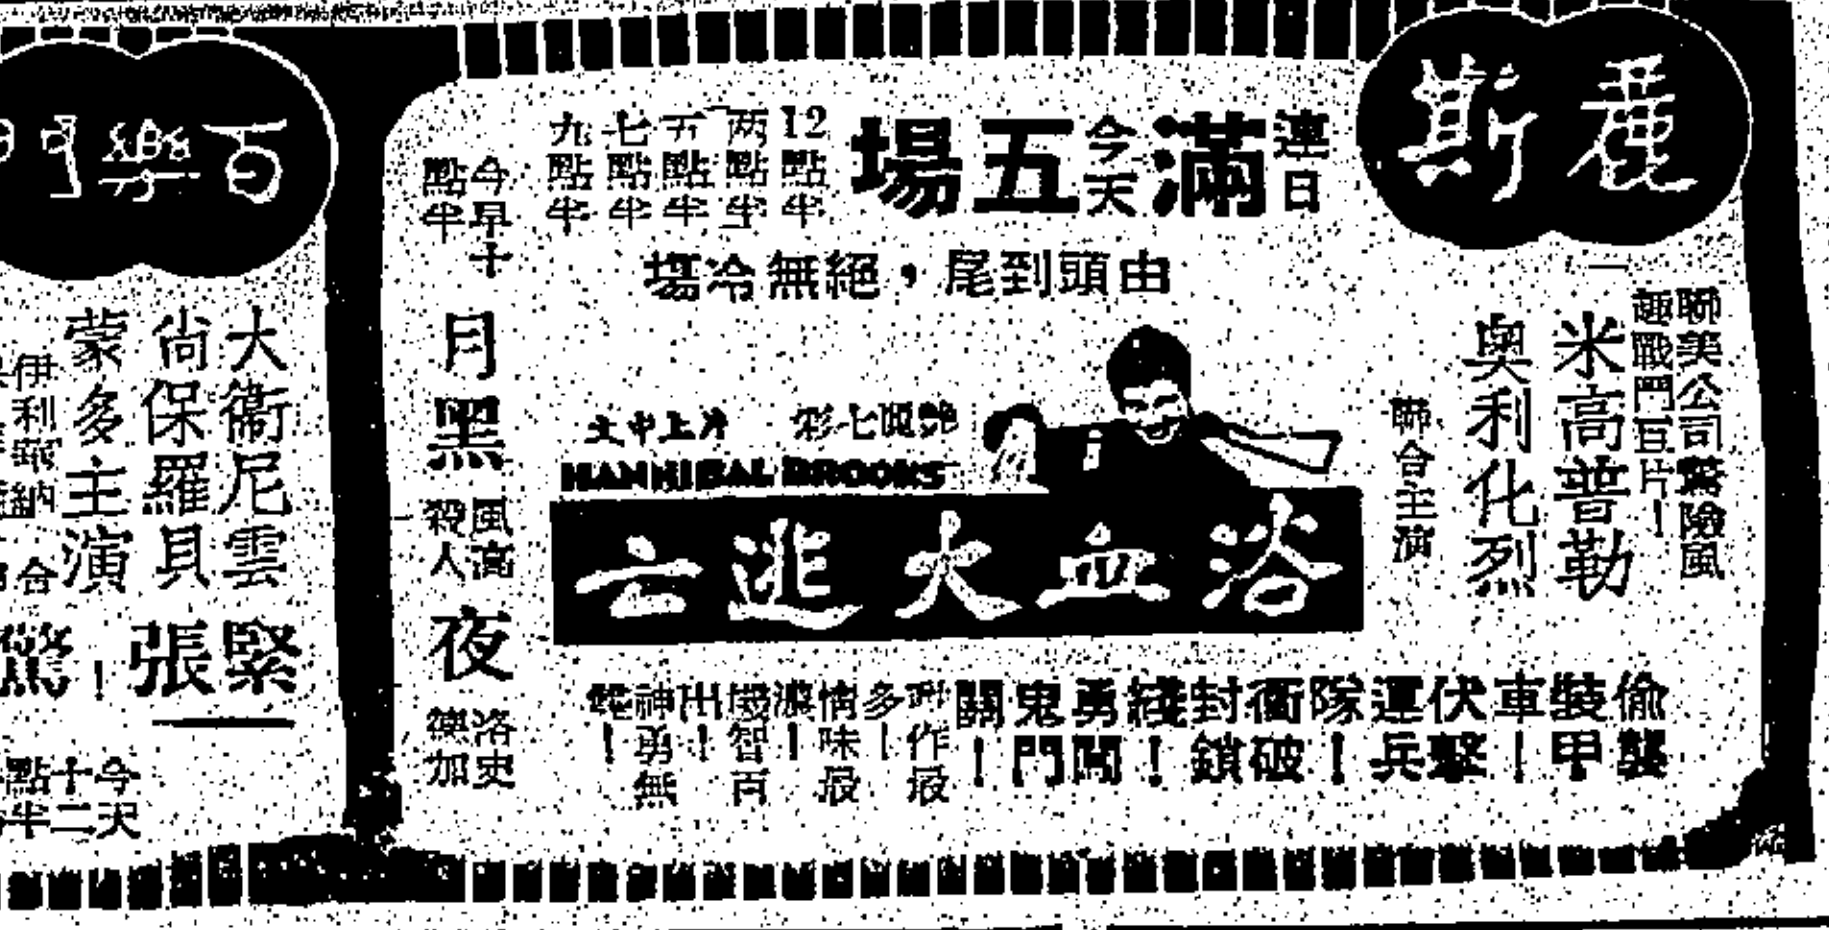 麗斯
連日滿
今天五場
12點半
两點半
五點半
七點半
九點半
由頭到尾，絕無冷場
聯美公司驚險風
趣戰鬥巨片！
米高普勒
奧利化烈
聯合主演
七彩
片上中文
HANNIBAL BROOKS
浴血大逃亡
偷襲裝甲車！
伏擊運兵隊！
衝破封鎖綫！
勇闖鬼門關！
作最多！
情味最濃！
機智百出！
神勇無
今早十點半
月黑
風高
殺人
夜
洛史
德加
百樂門
大衞尼雲
尚保羅貝
蒙多主演
伊利華納
合
緊張！驚
今天
十二
點半